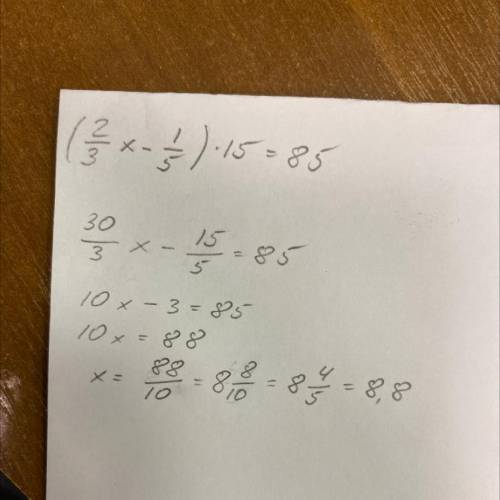 (2/3 x - 1/5) · 15 = 85
30/3 x - 15/5 = 85
10x - 3 = 85
10x = 88
x = 88/10 = 8 8/10 = 8 4/5 = 8,8